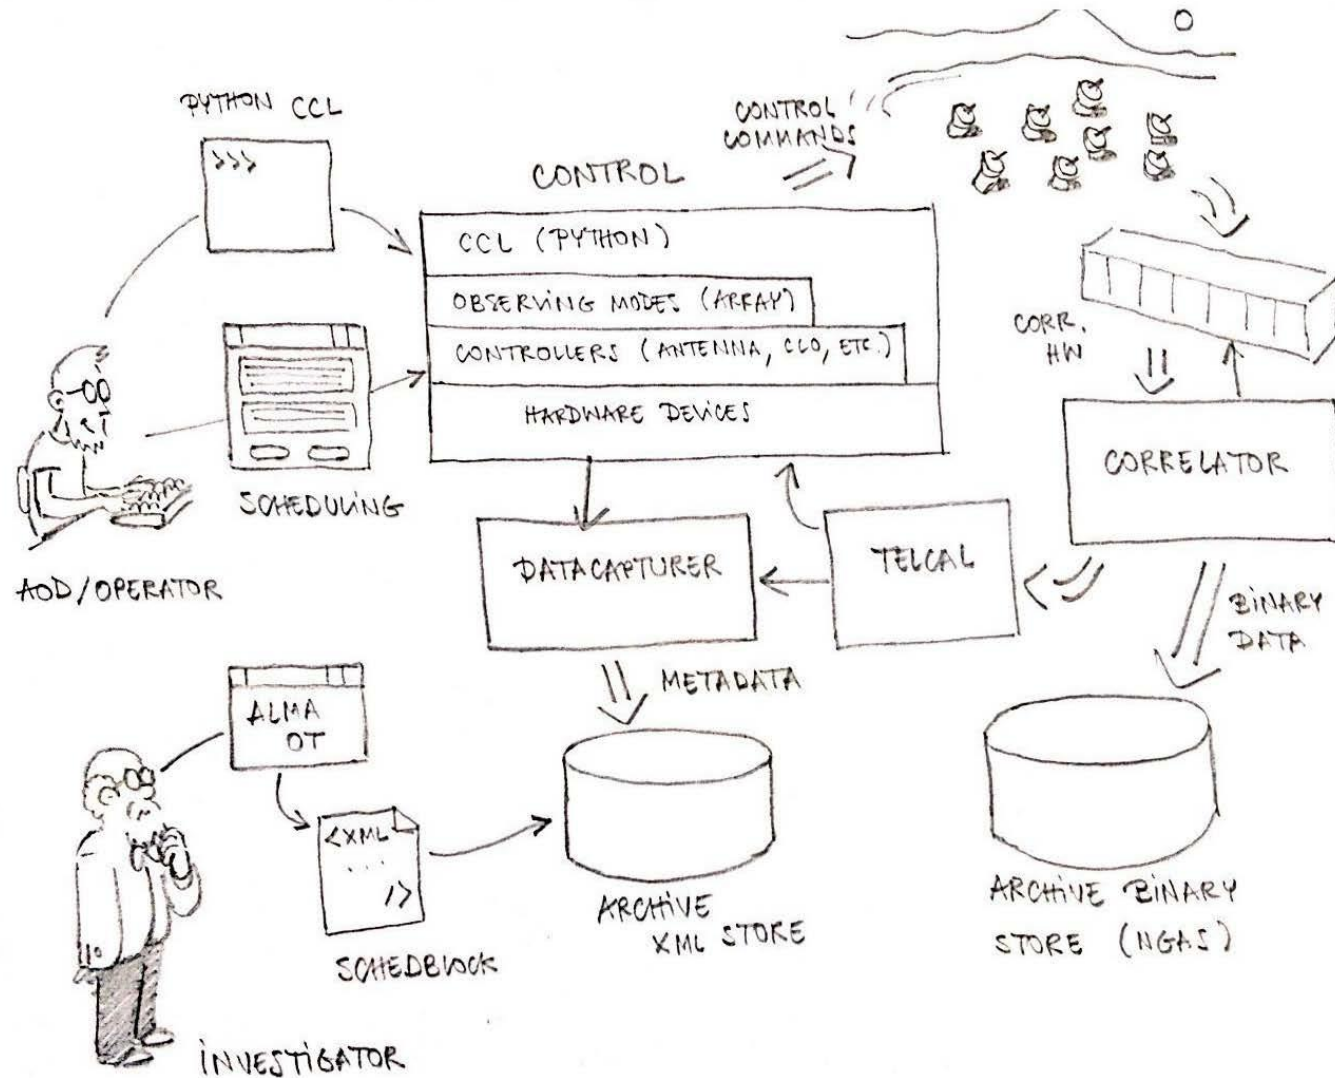 PYTHON CCL
>>>
CONTROL
COMMANDS
CONTROL
CCL (PYTHON)
OBSERVING MODES (ARRAY)
CONTROLLERS (ANTENNA, CLO, ETC.)
HARDWARE DEVICES
CORR.
HW
CORRELATOR
SCHEDULING
AOD/OPERATOR
DATACAPTURER
TELCAL
BINARY
DATA
METADATA
ALMA
OT
<XML
...
/>
SCHEDBLOCK
ARCHIVE
XML STORE
ARCHIVE BINARY
STORE (NGAS)
INVESTIGATOR